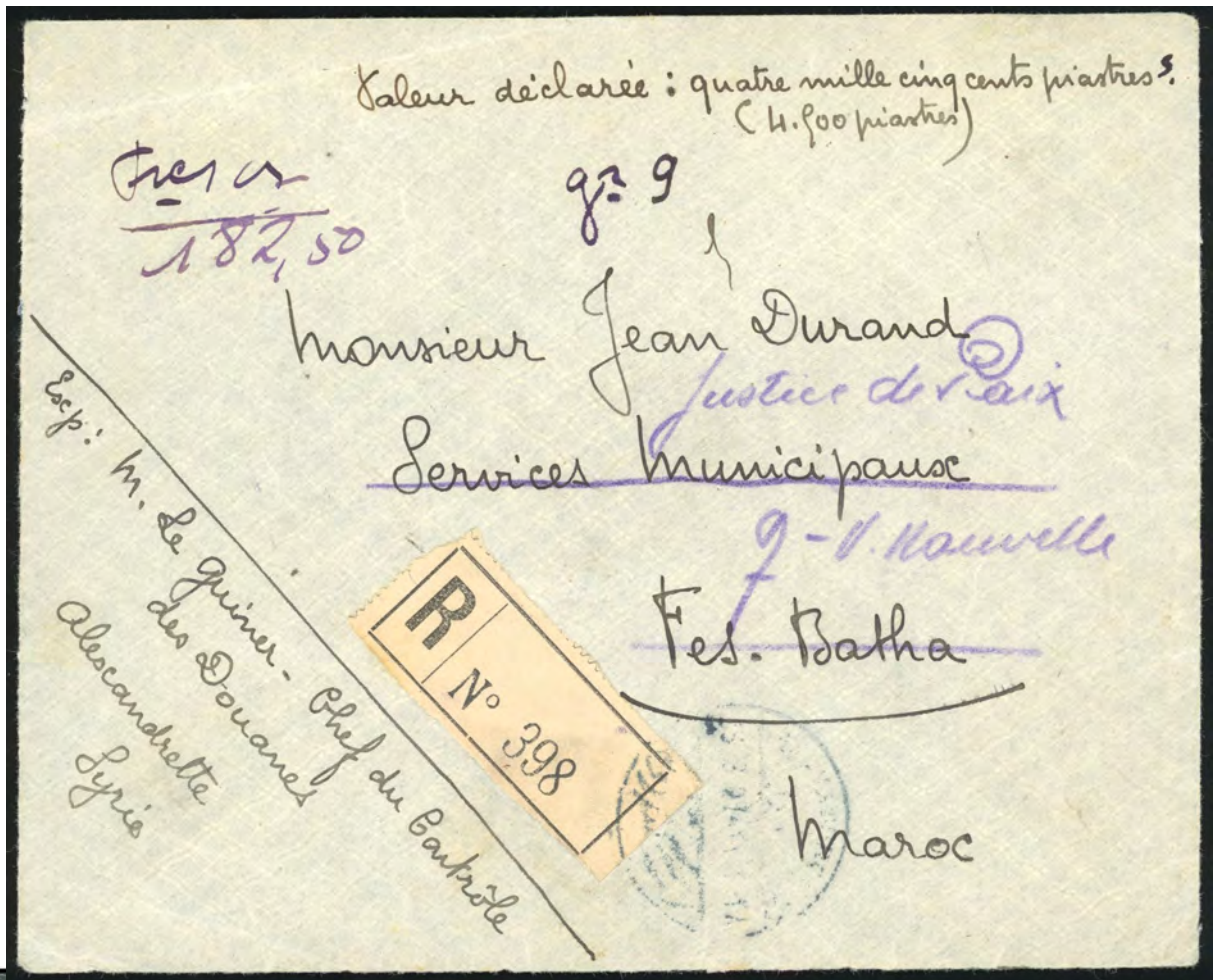 Valeur déclarée : quatre mille cinq cents piastres.
(4.500 piastres)
182,50
gr 9
Monsieur Jean Durand
Justice de Paix
Services Municipaux
Fes. Batha
Maroc
Exp: M. Le Guiner - Chef du Contrôle
des Douanes
Alexandrette
Syrie
R
No 398